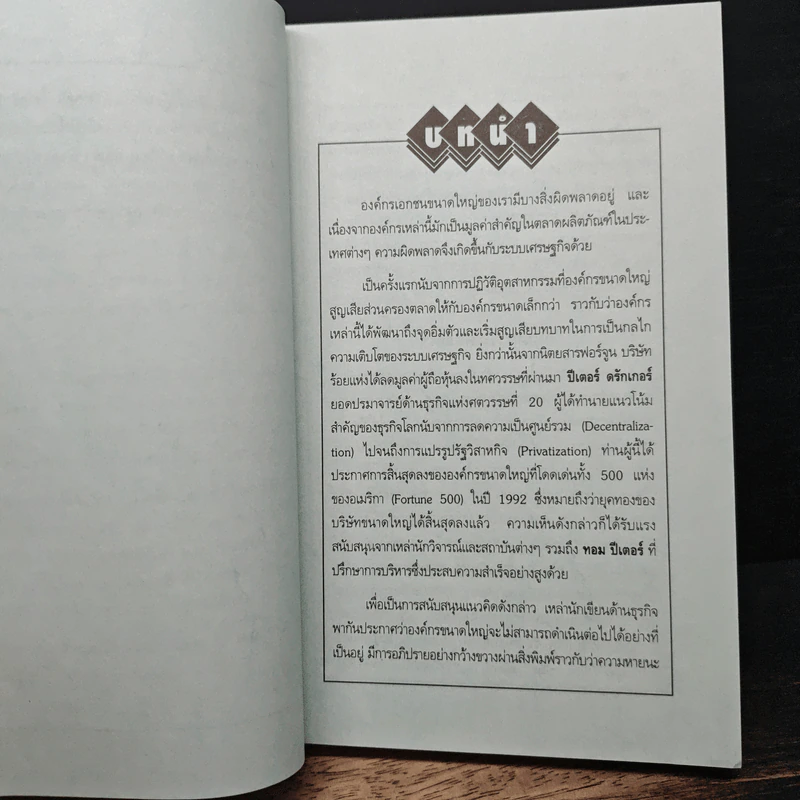 บทนำ
องค์กรเอกชนขนาดใหญ่ของเรามีบางสิ่งผิดพลาดอยู่ และ
เนื่องจากองค์กรเหล่านี้มักเป็นมูลค่าสำคัญในตลาดผลิตภัณฑ์ในประ-
เทศต่างๆ ความผิดพลาดจึงเกิดขึ้นกับระบบเศรษฐกิจด้วย
เป็นครั้งแรกนับจากการปฏิวัติอุตสาหกรรมที่องค์กรขนาดใหญ่
สูญเสียส่วนครองตลาดให้กับองค์กรขนาดเล็กกว่า ราวกับว่าองค์กร
เหล่านี้ได้พัฒนาถึงจุดอิ่มตัวและเริ่มสูญเสียบทบาทในการเป็นกลไก
ความเติบโตของระบบเศรษฐกิจ ยิ่งกว่านั้นจากนิตยสารฟอร์จูน บริษัท
ร้อยแห่งได้ลดมูลค่าผู้ถือหุ้นลงในทศวรรษที่ผ่านมา ปีเตอร์ ดรักเกอร์
ยอดปรมาจารย์ด้านธุรกิจแห่งศตวรรษที่ 20 ผู้ได้ทำนายแนวโน้ม
สำคัญของธุรกิจโลกนับจากการลดความเป็นศูนย์รวม (Decentraliza-
tion) ไปจนถึงการแปรรูปรัฐวิสาหกิจ (Privatization) ท่านผู้นี้ได้
ประกาศการสิ้นสุดลงขององค์กรขนาดใหญ่ที่โดดเด่นทั้ง 500 แห่ง
ของอเมริกา (Fortune 500) ในปี 1992 ซึ่งหมายถึงว่ายุคทองของ
บริษัทขนาดใหญ่ได้สิ้นสุดลงแล้ว ความเห็นดังกล่าวก็ได้รับแรง
สนับสนุนจากเหล่านักวิจารณ์และสถาบันต่างๆ รวมถึง ทอม ปีเตอร์ ที่
ปรึกษาการบริหารซึ่งประสบความสำเร็จอย่างสูงด้วย
เพื่อเป็นการสนับสนุนแนวคิดดังกล่าว เหล่านักเขียนด้านธุรกิจ
พากันประกาศว่าองค์กรขนาดใหญ่จะไม่สามารถดำเนินต่อไปได้อย่างที่
เป็นอยู่ มีการอภิปรายอย่างกว้างขวางผ่านสิ่งพิมพ์ราวกับว่าความหายนะ